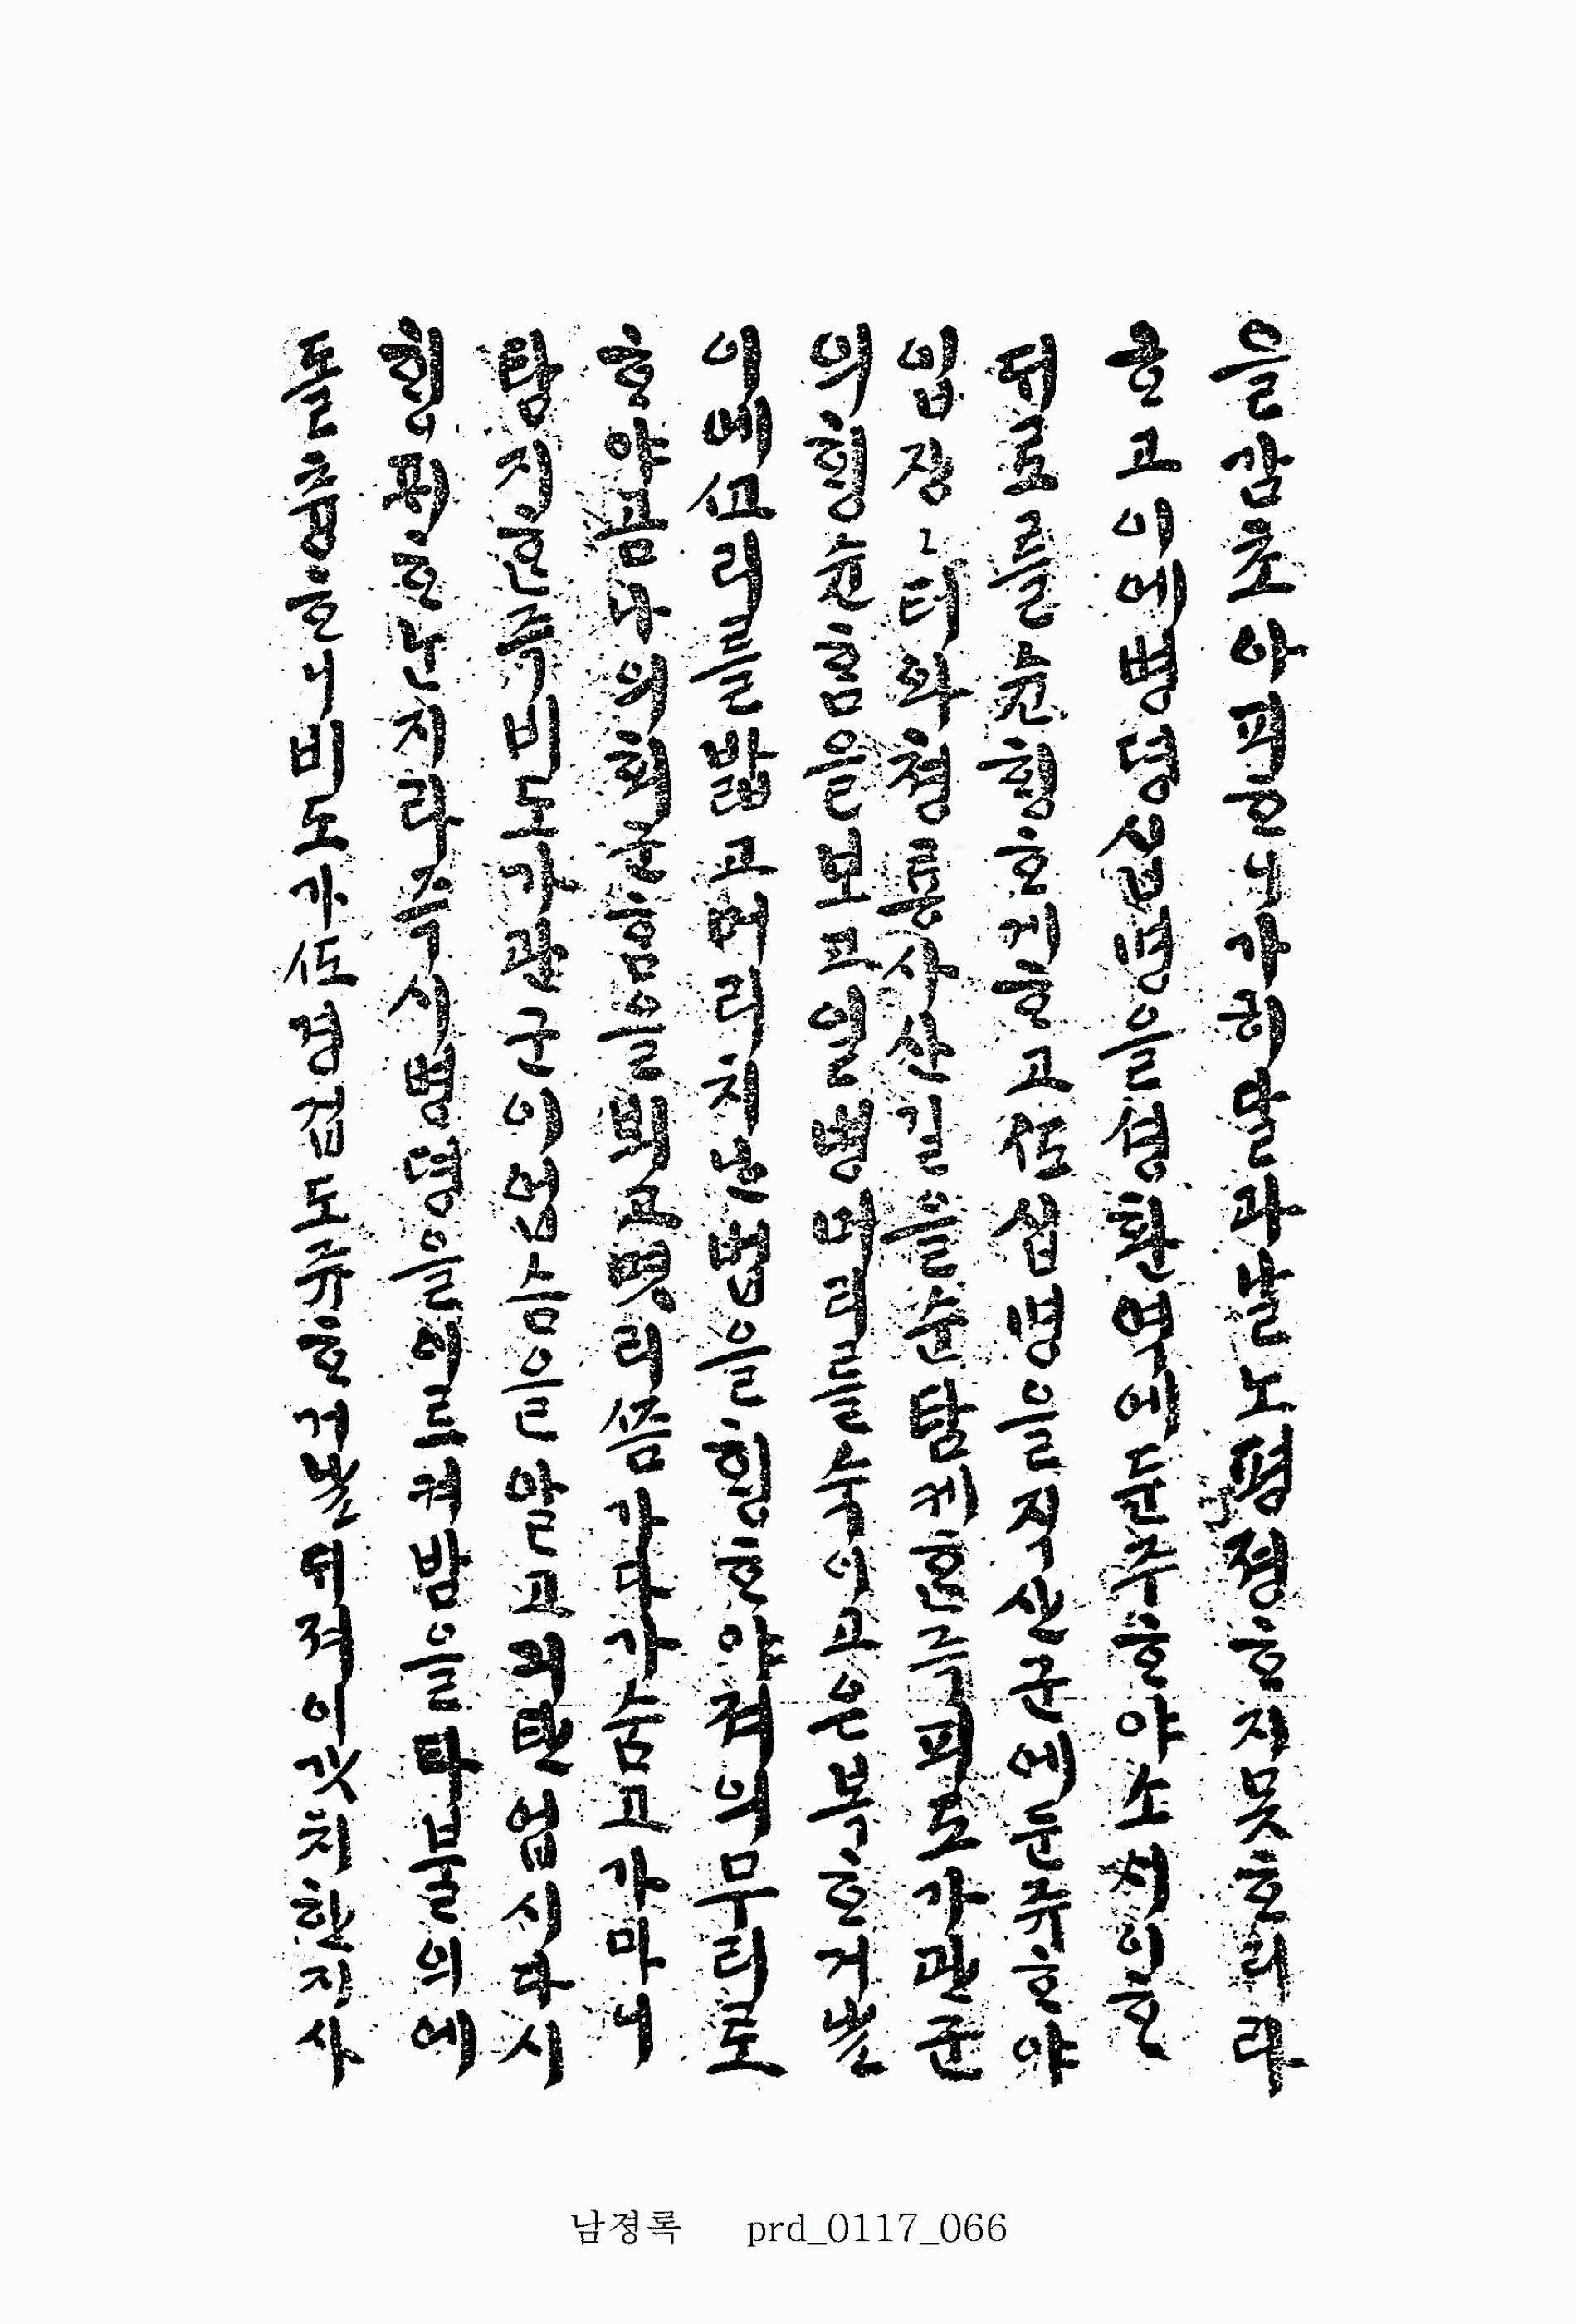 을감초아피ᄒᆞ니가히말과날노평졍ᄒᆞ지못ᄒᆞ리라
ᄒᆞ고이에병뎡십명을셩환역에둔주ᄒᆞ야소셔이ᄒᆞ
뒤로를슌ᄒᆡᆼᄒᆞ게ᄒᆞ고ᄯᅩ십명을직산군에둔쥬ᄒᆞ야
입장〻터와쳥룡사산길을슌탐케ᄒᆞᆫ즉피도가관군
의ᄒᆡᆼ슌ᄒᆞᆷ을보고일병머리를숙이고은복ᄒᆞ거ᄂᆞᆯ
이에ᄭᅩ리를밟고머리치ᄂᆞᆫ법을ᄒᆡᆼᄒᆞ야져의무리로
ᄒᆞ야곰나의회군ᄒᆞᆷ을뵈고몃리ᄶᅳᆷ가다가숨고가마니
탐지ᄒᆞᆫ즉비도가관군이업슴을알고긔탄업시다시
ᄒᆡᆼ픽ᄒᆞ난지라즉시병뎡을이르켜밤을타불의에
돌츙ᄒᆞ니비도가ᄯᅩ경겁도쥬ᄒᆞ거ᄂᆞᆯ뒤져이갓치한지사
남졍록 prd_0117_066